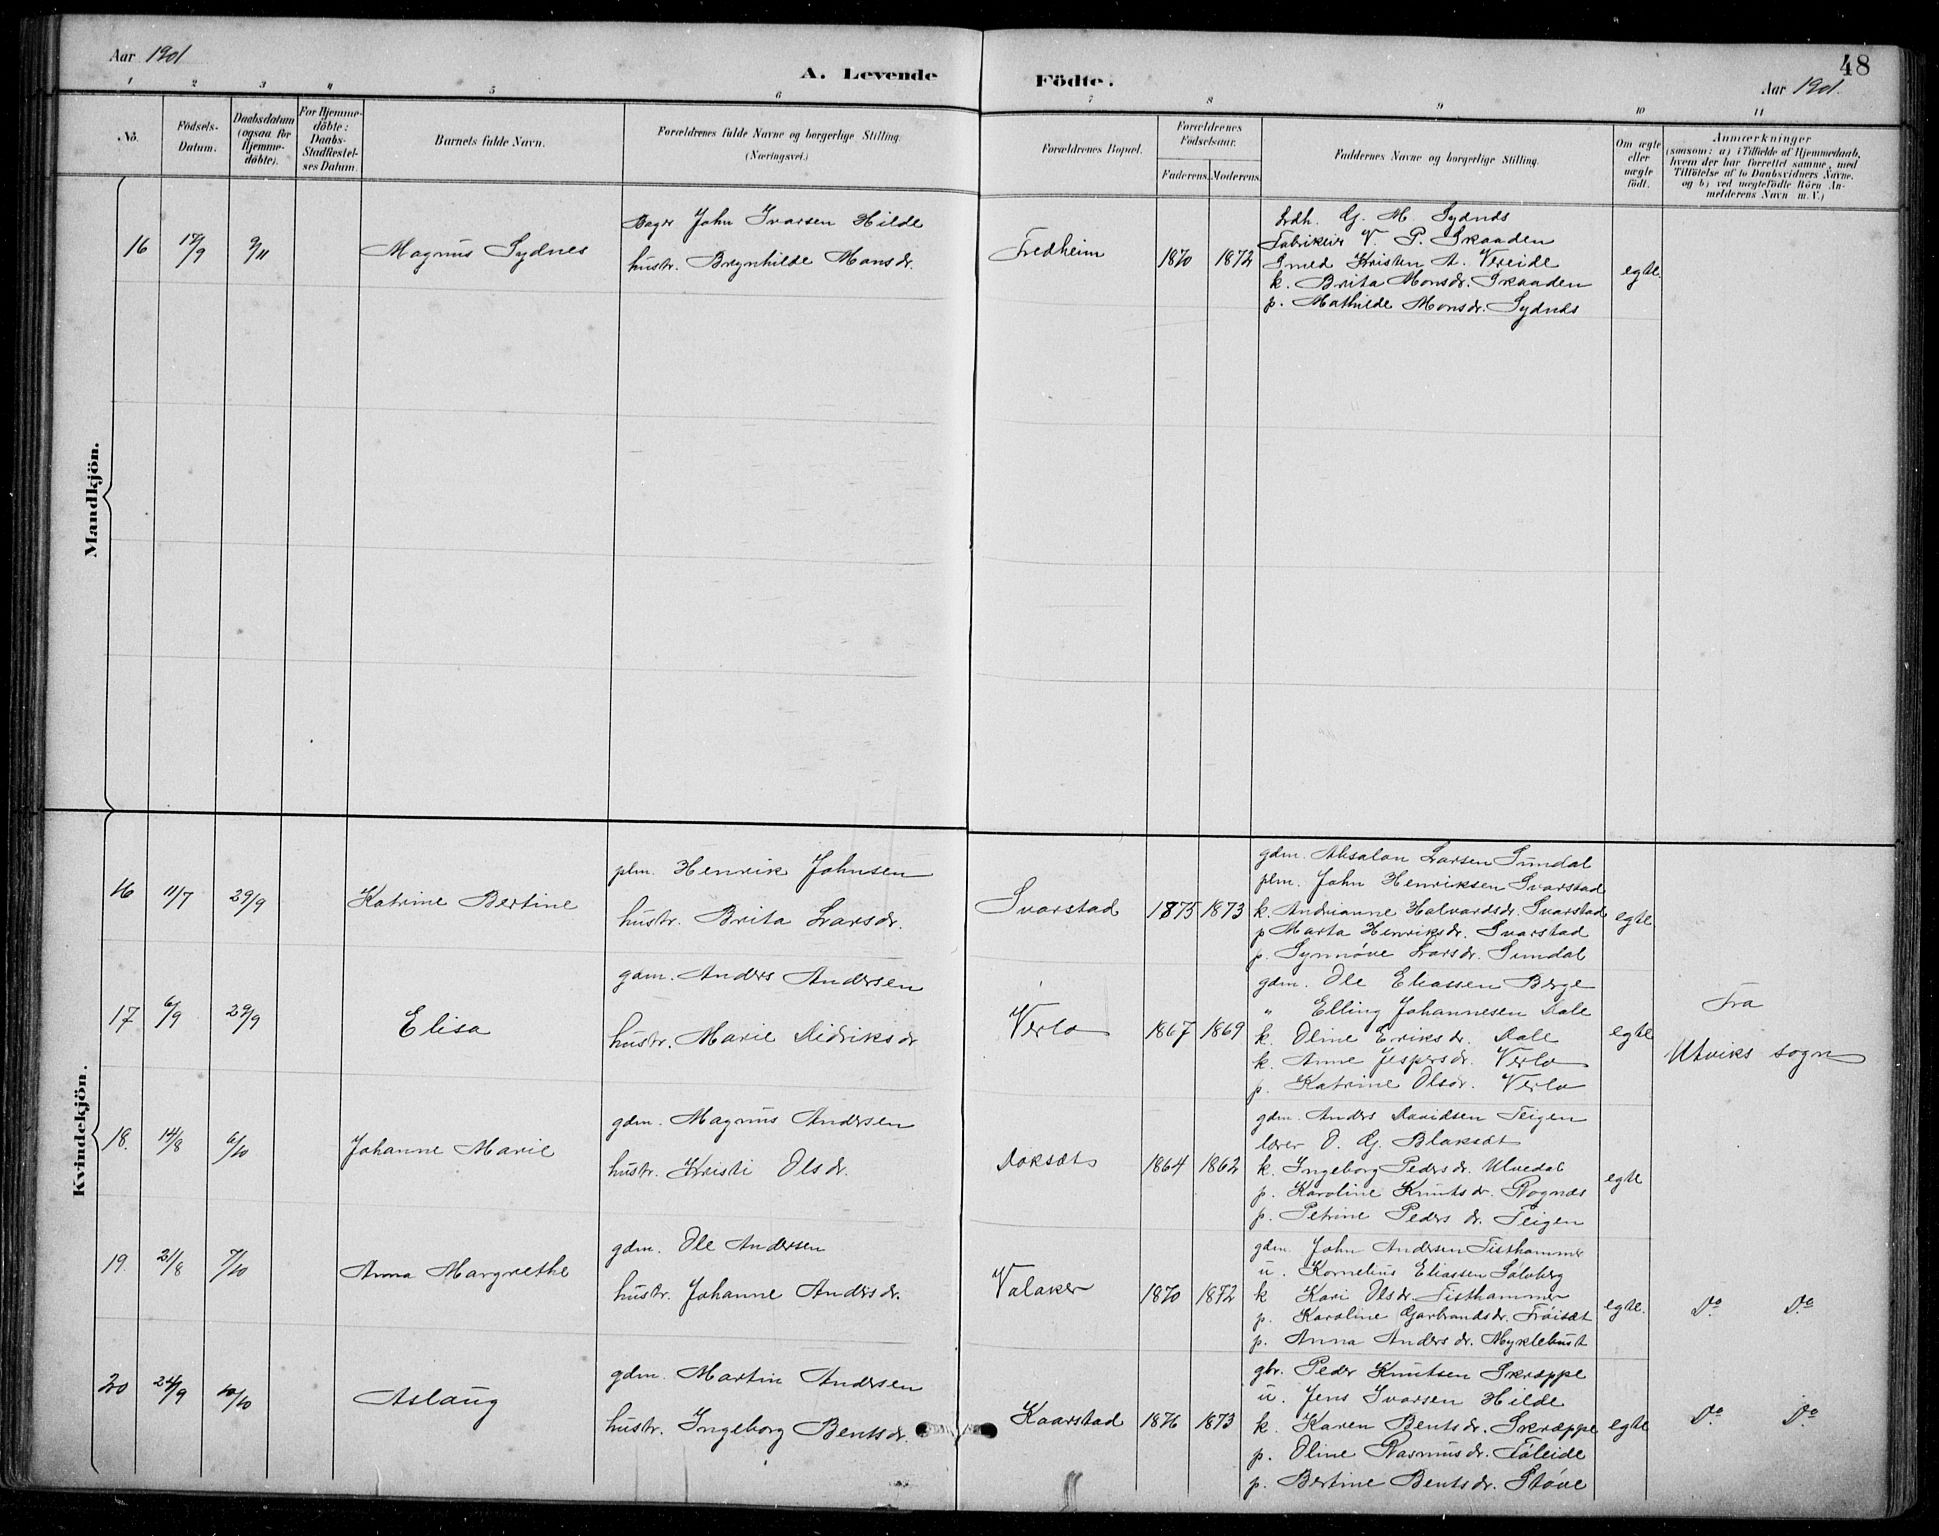 Aar 1901
A. Levende
Födte.
48
Aar 1901.
1 2 3 4 5 6 7 8 9 10 11
No.
Födsels-
Datum.
Daabsdatum
(ogsaa for
Hjemme-
döbte).
For Hjemme-
döbte:
Daabs-
Stadfestel-
ses Datum.
Barnets fulde Navn.
Forældrenes fulde Navne og borgerlige Stilling.
(Næringsvei.)
Forældrenes Bopæl.
Forældrenes
Födselsaar.
Faderens. Moderens.
Faddernes Navne og borgerlige Stilling.
Om ægte
eller
uægte
födt.
Anmærkninger
(saasom: a) i Tilfælde af Hjemmedaab,
hvem der har forrettet samme, med
Tilföielse af to Daabsvidners Navne.
og b) ved uægtefödte Börn An-
melderens Navn m. V.)
Mandkjön.
16
/9
9/11
Magnus Sydnes
Bager John Ivarsen Hilde
hustr. Brynhilde Monsdr.
Fredheim
1870
1872
Ldh. G. M. Sydnes
Fabrikeier V. P. Skaaden
Smed Kristen A. Vereide
k. Brita Monsdr. Skaaden
p. Mathilde Monsdr. Sydnes
egte.
Kvindekjön.
16
11/7
29/9
Katrine Bertine
plm. Henrik Johnsen
hustr. Brita Larsdr.
Svarstad
1875
1873
gdm. Absalon Larsen Sundal
plm. John Henriksen Svarstad
k. Andrianne Halvardsdr. Svarstad
p Marta Henriksdr. Svarstad
p. Synnøve Larsdr. Sundal
egte
17
6/9
29/9
Elisa
gdm. Anders Andersen
hustr. Marie Didriksdr
Verlo
1867
1869
gdm. Ole Eliassen Berge
" Elling Johannesen Dale
k. Oline Eriksdr. Dale
k. Anne Jespersdr. Verlo
p. Katrine Olsdr. Verlo
egte
Fra
Utviks sogn
18.
14/8
6/10
Johanne Marie
gdm. Magnus Andersen
hustr. Kristi Olsdr.
Doksæt
1864
1862
gdm. Anders Davidsen Teigen
lærer O. G. Blaksæt
k. Ingeborg Pedersdr. Ulvedal
p. Karoline Knutsdr. Rognes
p. Petrine Pedersdr. Teigen
egte
19.
31/8
7/10
Anna Margrethe
gdm. Ole Andersen
hustr. Johanne Andersdr.
Valaker
1870
1872
gdm. John Andersen Tisthammer
u. Kornelius Eliassen Sølvberg
k Kari Olsdr. Tisthammer
p. Karoline Garbrandsdr. Frøisæt
p. Anna Andersdr. Myklebust
egte.
Do Do
20
24/9
10/10
Aslaug
gdm. Martin Andersen
hustr. Ingeborg Bentsdr.
Kaarstad
1876
1873
gbr. Peder Knutsen Skræppe
u. Jens Ivarsen Hilde
k. Karen Bentsdr. Skræppe
p. Oline Rasmusdr. Føleide
p. Bertine Bentsdr. Støve
egte
Do Do